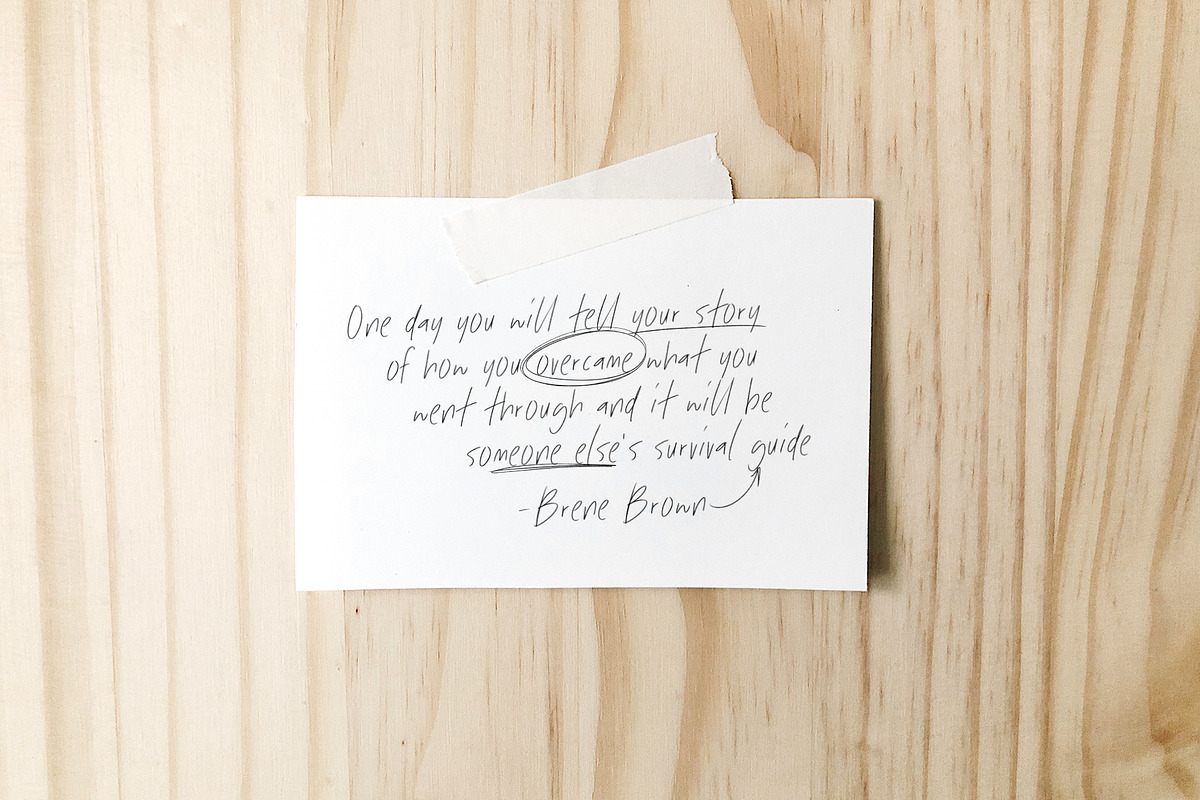 One day you will tell your story
of how you overcame what you
went through and it will be
someone else's survival guide
-Brene Brown